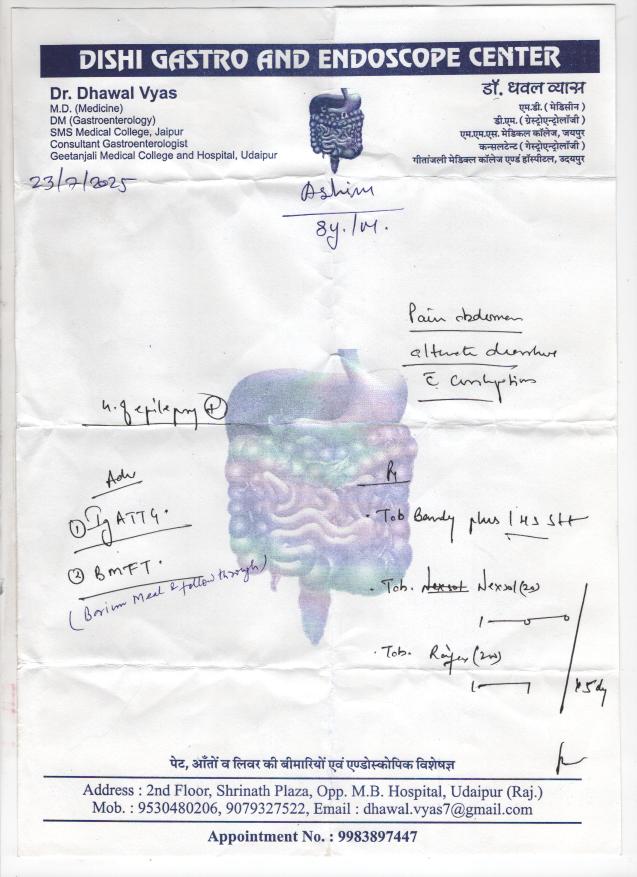 DISHI GASTRO AND ENDOSCOPE CENTER
Dr. Dhawal Vyas
M.D. (Medicine)
DM (Gastroenterology)
SMS Medical College, Jaipur
Consultant Gastroenterologist
Geetanjali Medical College and Hospital, Udaipur
डॉ. धवल व्यास
एम.डी. ( मेडिसीन )
डी.एम. ( ग्रेस्ट्रोएन्ट्रोलॉजी )
एम.एम.एस. मेडिकल कॉलेज, जयपुर
कन्सलटेन्ट ( गेस्ट्रोएन्ट्रोलॉजी )
गीतांजली मेडिकल कॉलेज एण्ड हॉस्पीटल, उदयपुर
23/7/2025
8y./M.
Pain abdomen
alternate diarrhoea
c̄ constipation
H. of epilepsy (+)
Adv
① IgATTG.
② BMFT.
(Barium Meal & follow through)
Rx
. Tab Bandy plus 1 HS
. Tab. Nexsol (20)
. Tab. (20)
x 5 day
पेट, आँतों व लिवर की बीमारियों एवं एण्डोस्कोपिक विशेषज्ञ
Address : 2nd Floor, Shrinath Plaza, Opp. M.B. Hospital, Udaipur (Raj.)
Mob. : 9530480206, 9079327522, Email : dhawal.vyas7@gmail.com
Appointment No. : 9983897447